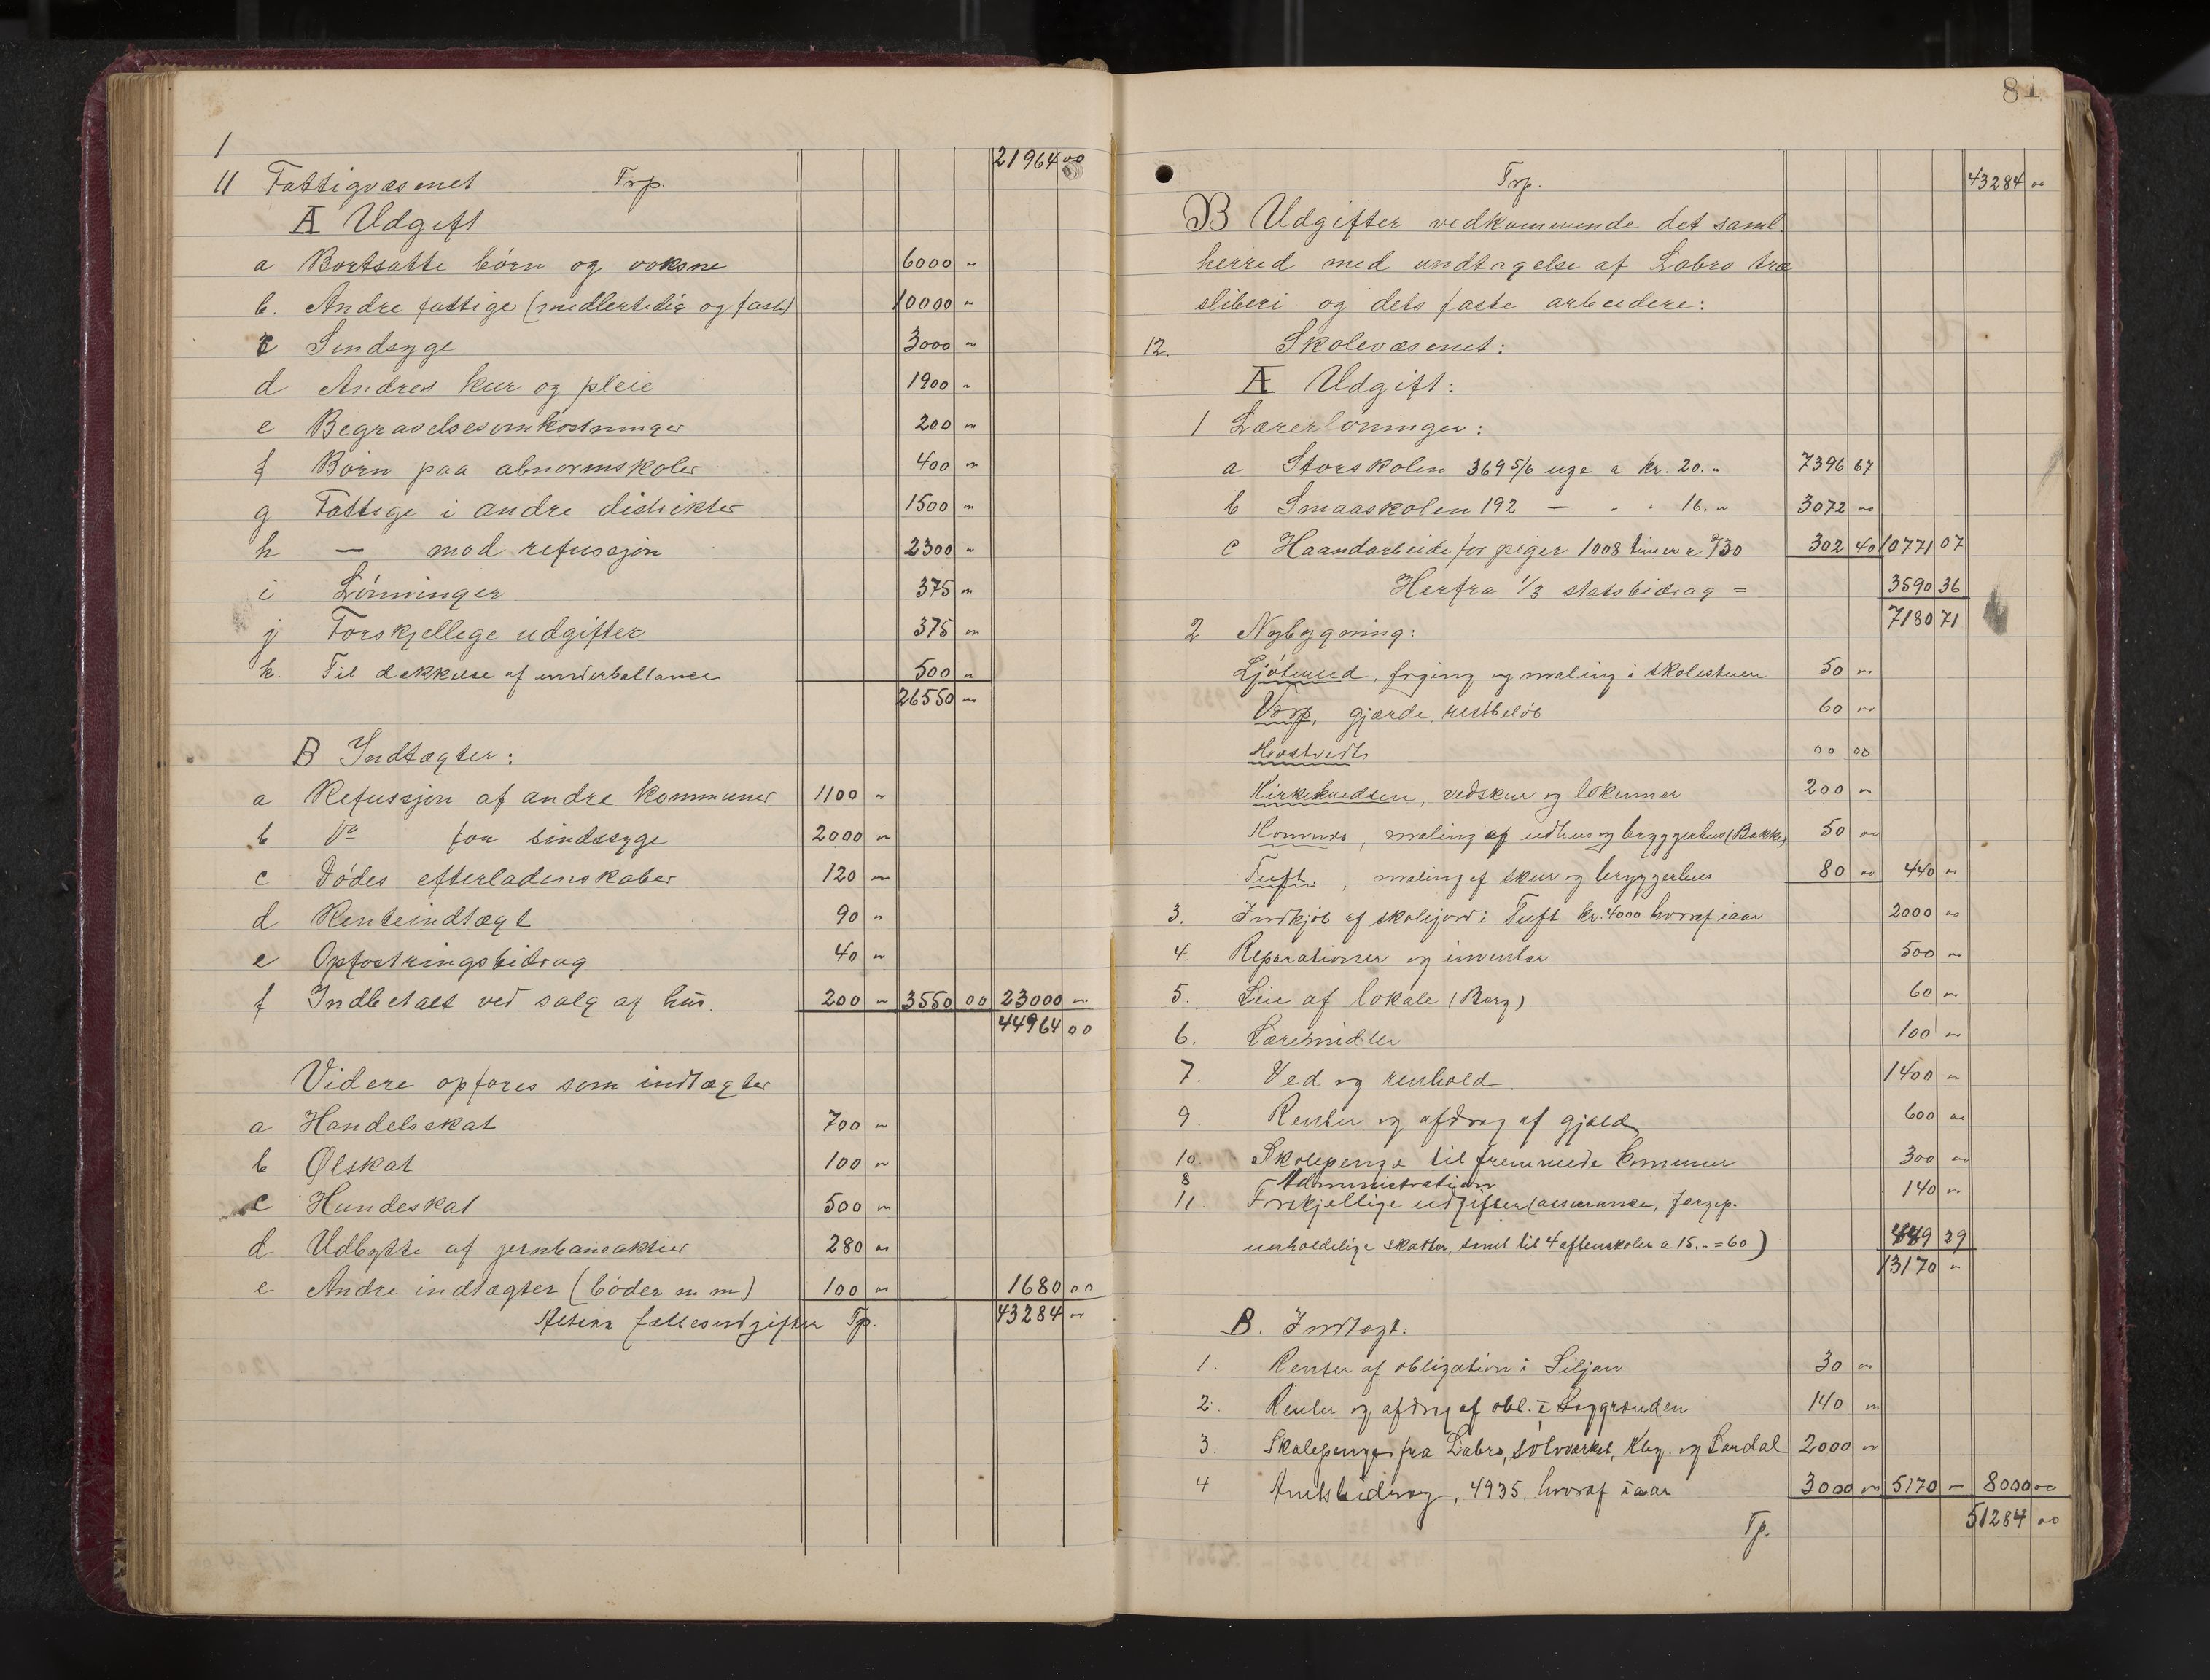 1
21964 00
11 Fattigvæsenet Trp.
A Udgift
a Bortsatte börn og voksne 6000 "
b. Andre fattige (midlertidig og fast) 10000 "
c Sindsyge 3000 "
d Andres kur og pleie 1900 "
e Begravelsesomkostninger 200 "
f Börn paa abnormskoler 400 "
g Fattige i andre distrikter 1500 "
h — mod refussjon 2300 "
i Lönninger 375 "
j Forskjellege udgifter 375 "
k. Til dækkelse af underballance 500 "
26550 "
B Indtægter:
a Refussjon af andre kommuner 1100 "
b Do for sindssyge 2000 "
c Dödes efterladenskaber 120 "
d Renteindtægt 90 "
e Opfostringsbidrag 40 "
f Indbetalt ved salg af hus. 200 " 3550 00 23000 "
44964 00
Videre opføres som indtægter
a Handelsskat 700 "
b Ølskat 100 "
c Hundeskat 500 "
d Udbytte af jernbaneaktier 280 "
e Andre indtægter (böder m m) 100 " 1680 00
Altsaa fællesudgifter Tp. 43284 "
84
Trp. 43284 00
B Udgifter vedkommende det saml.
herred med undtagelse af Labro træ
sliberi og dets faste arbeidere:
12. Skolevæsenet:
A Udgift:
1 Lærerlöninger:
a Storskolen 369 5/6 uge a kr. 20. " 7396 67
b Smaaskolen 192 — " " 16. " 3072 00
c Haandarbeide for piger 1008 timer a 30 302 40 10771 07
Herfra 1/3 statsbidrag = 3590 36
7180 71
2 Nybygning:
Ljöterud, forging og maling i skolestuen 50 "
Vorp, gjærde, restbelöb 60 "
Hvostvedt 00 00
Kirkeknedsen, vedskur og lokummer 200 "
Komnes, maling af udhus og bryggerhus (Bakke) 50 00
Tuft, maling af skur og bryggerhus 80 00 440 "
3. Indkjöb af skolejord i Tuft kr. 4000 hvoraf iaar 2000 00
4. Reparationer og inventar 500 "
5. Leie af lokale (Berg) 60 "
6. Læremidler 100 "
7. Ved og renhold. 1400 "
9. Renter og afdrag af gjæld 600 00
10. Skolepenge til fremmede kommuner 300 00
8 Administration 140 "
11. Forskjellige udgifter (assurance, færgep.
uerholdelige skatter, samt til 4 aftenskoler a 15. " = 60) 449 29
13170 "
B. Indtægt:
1. Renter af obligation i Siljan 30 "
2. Renter og afdrag af obl. i Loggrenden 140 "
3. Skolepenge fra Labro, sölvværket, Kbg. og Sandal 2000 "
4 Amtsbidrag, 4935. hvoraf iaar 3000 " 5170 — 8000 00
Tp. 51284 00